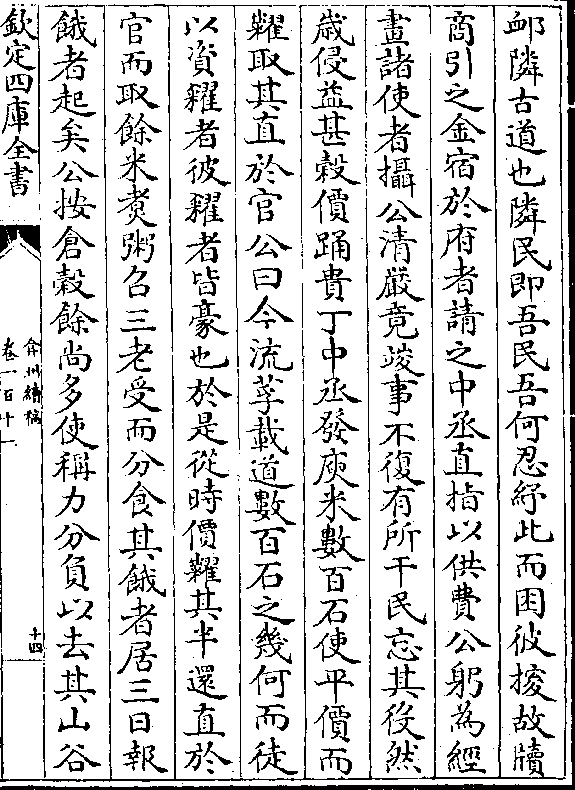 䘏隣古道也隣民即吾民吾何忍紓此而困彼援故牘
商引之金宿於府者請之中丞直指以供費公躬為經
畫諸使者攝公清嚴竟竣事不復有所干民忘其役然
歲侵益甚穀價踊貴丁中丞發庾米數百石使平價而
糶取其直於官公曰今流莩載道數百石之幾何而徒
以資糴者彼糴者皆豪也於是從時價糶其半還直於
官而取餘米煑粥召三老受而分食其餓者居三日報
餓者起矣公按倉穀餘尚多使稱力分負以去其山谷
欽定四庫全書
弇州續稿
卷一百十一
十四